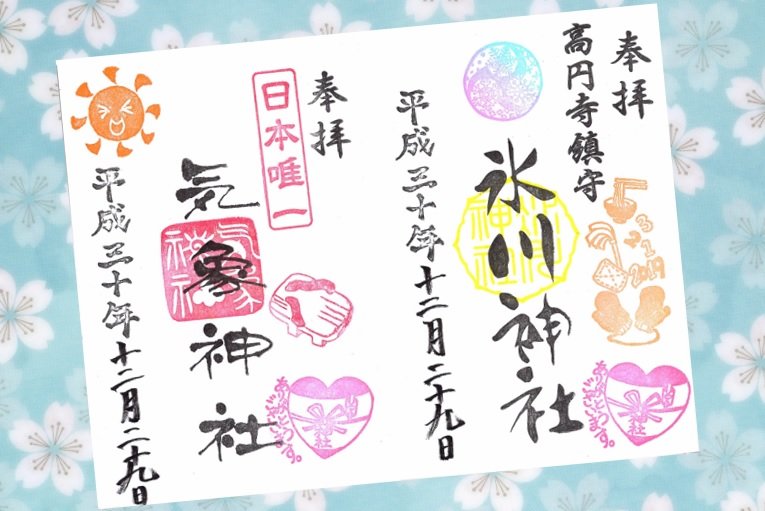 奉拝
高円寺鎮守
氷川神社
氷川神社
3
2
1
2019
ありがとうございます。
平成三十年十二月二十九日
奉拝
日本唯一
気象神社
気象神社
ありがとうございます。
平成三十年十二月二十九日